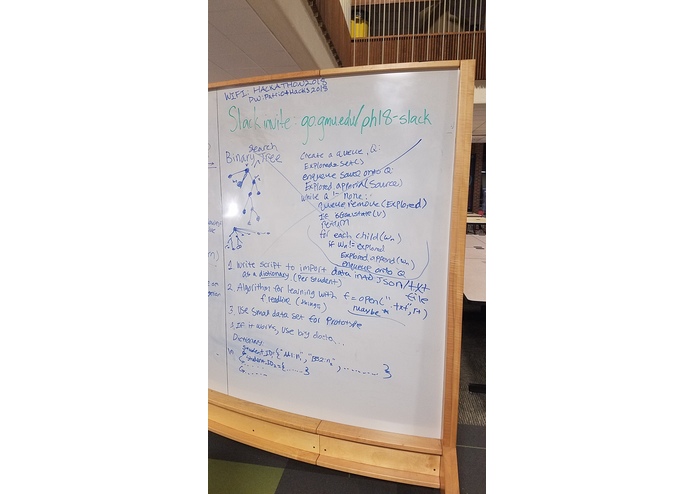 WIFI: HACKATHON2018
PW: PatriotHacks2018
Slack invite: go.gmu.edu/ph18-slack
search
Binary Tree
Create a queue, Q:
Explored = Set()
enqueue source onto Q:
Explored.append(Source)
While Q != none:
queue.remove(Explored)
If isGoalstate(v)
return
for each child(wn)
if wn != explored
Explored.append(wn)
enqueue onto Q
1. Write script to import data into Json/txt file
as a dictionary (per student)
2. Algorithm for learning with f = open(" .txt", r+)
f readline (things) maybe*
3. Use Small data set for Prototype
If it works, use big data...
Dictionary: